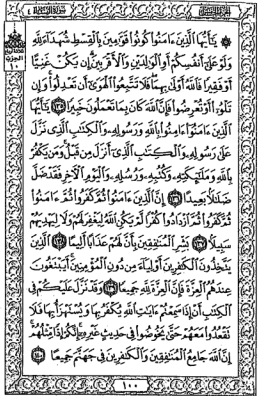 الجزء الخامس سورة النساء
۞ يَٰٓأَيُّهَا ٱلَّذِينَ ءَامَنُوا۟ كُونُوا۟ قَوَّٰمِينَ بِٱلْقِسْطِ شُهَدَآءَ لِلَّهِ
وَلَوْ عَلَىٰٓ أَنفُسِكُمْ أَوِ ٱلْوَٰلِدَيْنِ وَٱلْأَقْرَبِينَ إِن يَكُنْ غَنِيًّا
أَوْ فَقِيرًا فَٱللَّهُ أَوْلَىٰ بِهِمَا فَلَا تَتَّبِعُوا۟ ٱلْهَوَىٰٓ أَن تَعْدِلُوا۟ وَإِن
تَلْوُۥٓا۟ أَوْ تُعْرِضُوا۟ فَإِنَّ ٱللَّهَ كَانَ بِمَا تَعْمَلُونَ خَبِيرًا ١٣٥ يَٰٓأَيُّهَا
ٱلَّذِينَ ءَامَنُوٓا۟ ءَامِنُوا۟ بِٱللَّهِ وَرَسُولِهِۦ وَٱلْكِتَٰبِ ٱلَّذِى نَزَّلَ
عَلَىٰ رَسُولِهِۦ وَٱلْكِتَٰبِ ٱلَّذِىٓ أَنزَلَ مِن قَبْلُ وَمَن يَكْفُرْ
بِٱللَّهِ وَمَلَٰٓئِكَتِهِۦ وَكُتُبِهِۦ وَرُسُلِهِۦ وَٱلْيَوْمِ ٱلْءَاخِرِ فَقَدْ ضَلَّ
ضَلَٰلًۢا بَعِيدًا ١٣٦ إِنَّ ٱلَّذِينَ ءَامَنُوا۟ ثُمَّ كَفَرُوا۟ ثُمَّ ءَامَنُوا۟
ثُمَّ كَفَرُوا۟ ثُمَّ ٱزْدَادُوا۟ كُفْرًا لَّمْ يَكُنِ ٱللَّهُ لِيَغْفِرَ لَهُمْ وَلَا لِيَهْدِيَهُمْ
سَبِيلًۢا ١٣٧ بَشِّرِ ٱلْمُنَٰفِقِينَ بِأَنَّ لَهُمْ عَذَابًا أَلِيمًا ١٣٨ ٱلَّذِينَ
يَتَّخِذُونَ ٱلْكَٰفِرِينَ أَوْلِيَآءَ مِن دُونِ ٱلْمُؤْمِنِينَ أَيَبْتَغُونَ
عِندَهُمُ ٱلْعِزَّةَ فَإِنَّ ٱلْعِزَّةَ لِلَّهِ جَمِيعًا ١٣٩ وَقَدْ نَزَّلَ عَلَيْكُمْ فِى
ٱلْكِتَٰبِ أَنْ إِذَا سَمِعْتُمْ ءَايَٰتِ ٱللَّهِ يُكْفَرُ بِهَا وَيُسْتَهْزَأُ بِهَا فَلَا
تَقْعُدُوا۟ مَعَهُمْ حَتَّىٰ يَخُوضُوا۟ فِى حَدِيثٍ غَيْرِهِۦٓ إِنَّكُمْ إِذًا مِّثْلُهُمْ
إِنَّ ٱللَّهَ جَامِعُ ٱلْمُنَٰفِقِينَ وَٱلْكَٰفِرِينَ فِى جَهَنَّمَ جَمِيعًا ١٤٠
١٠٠